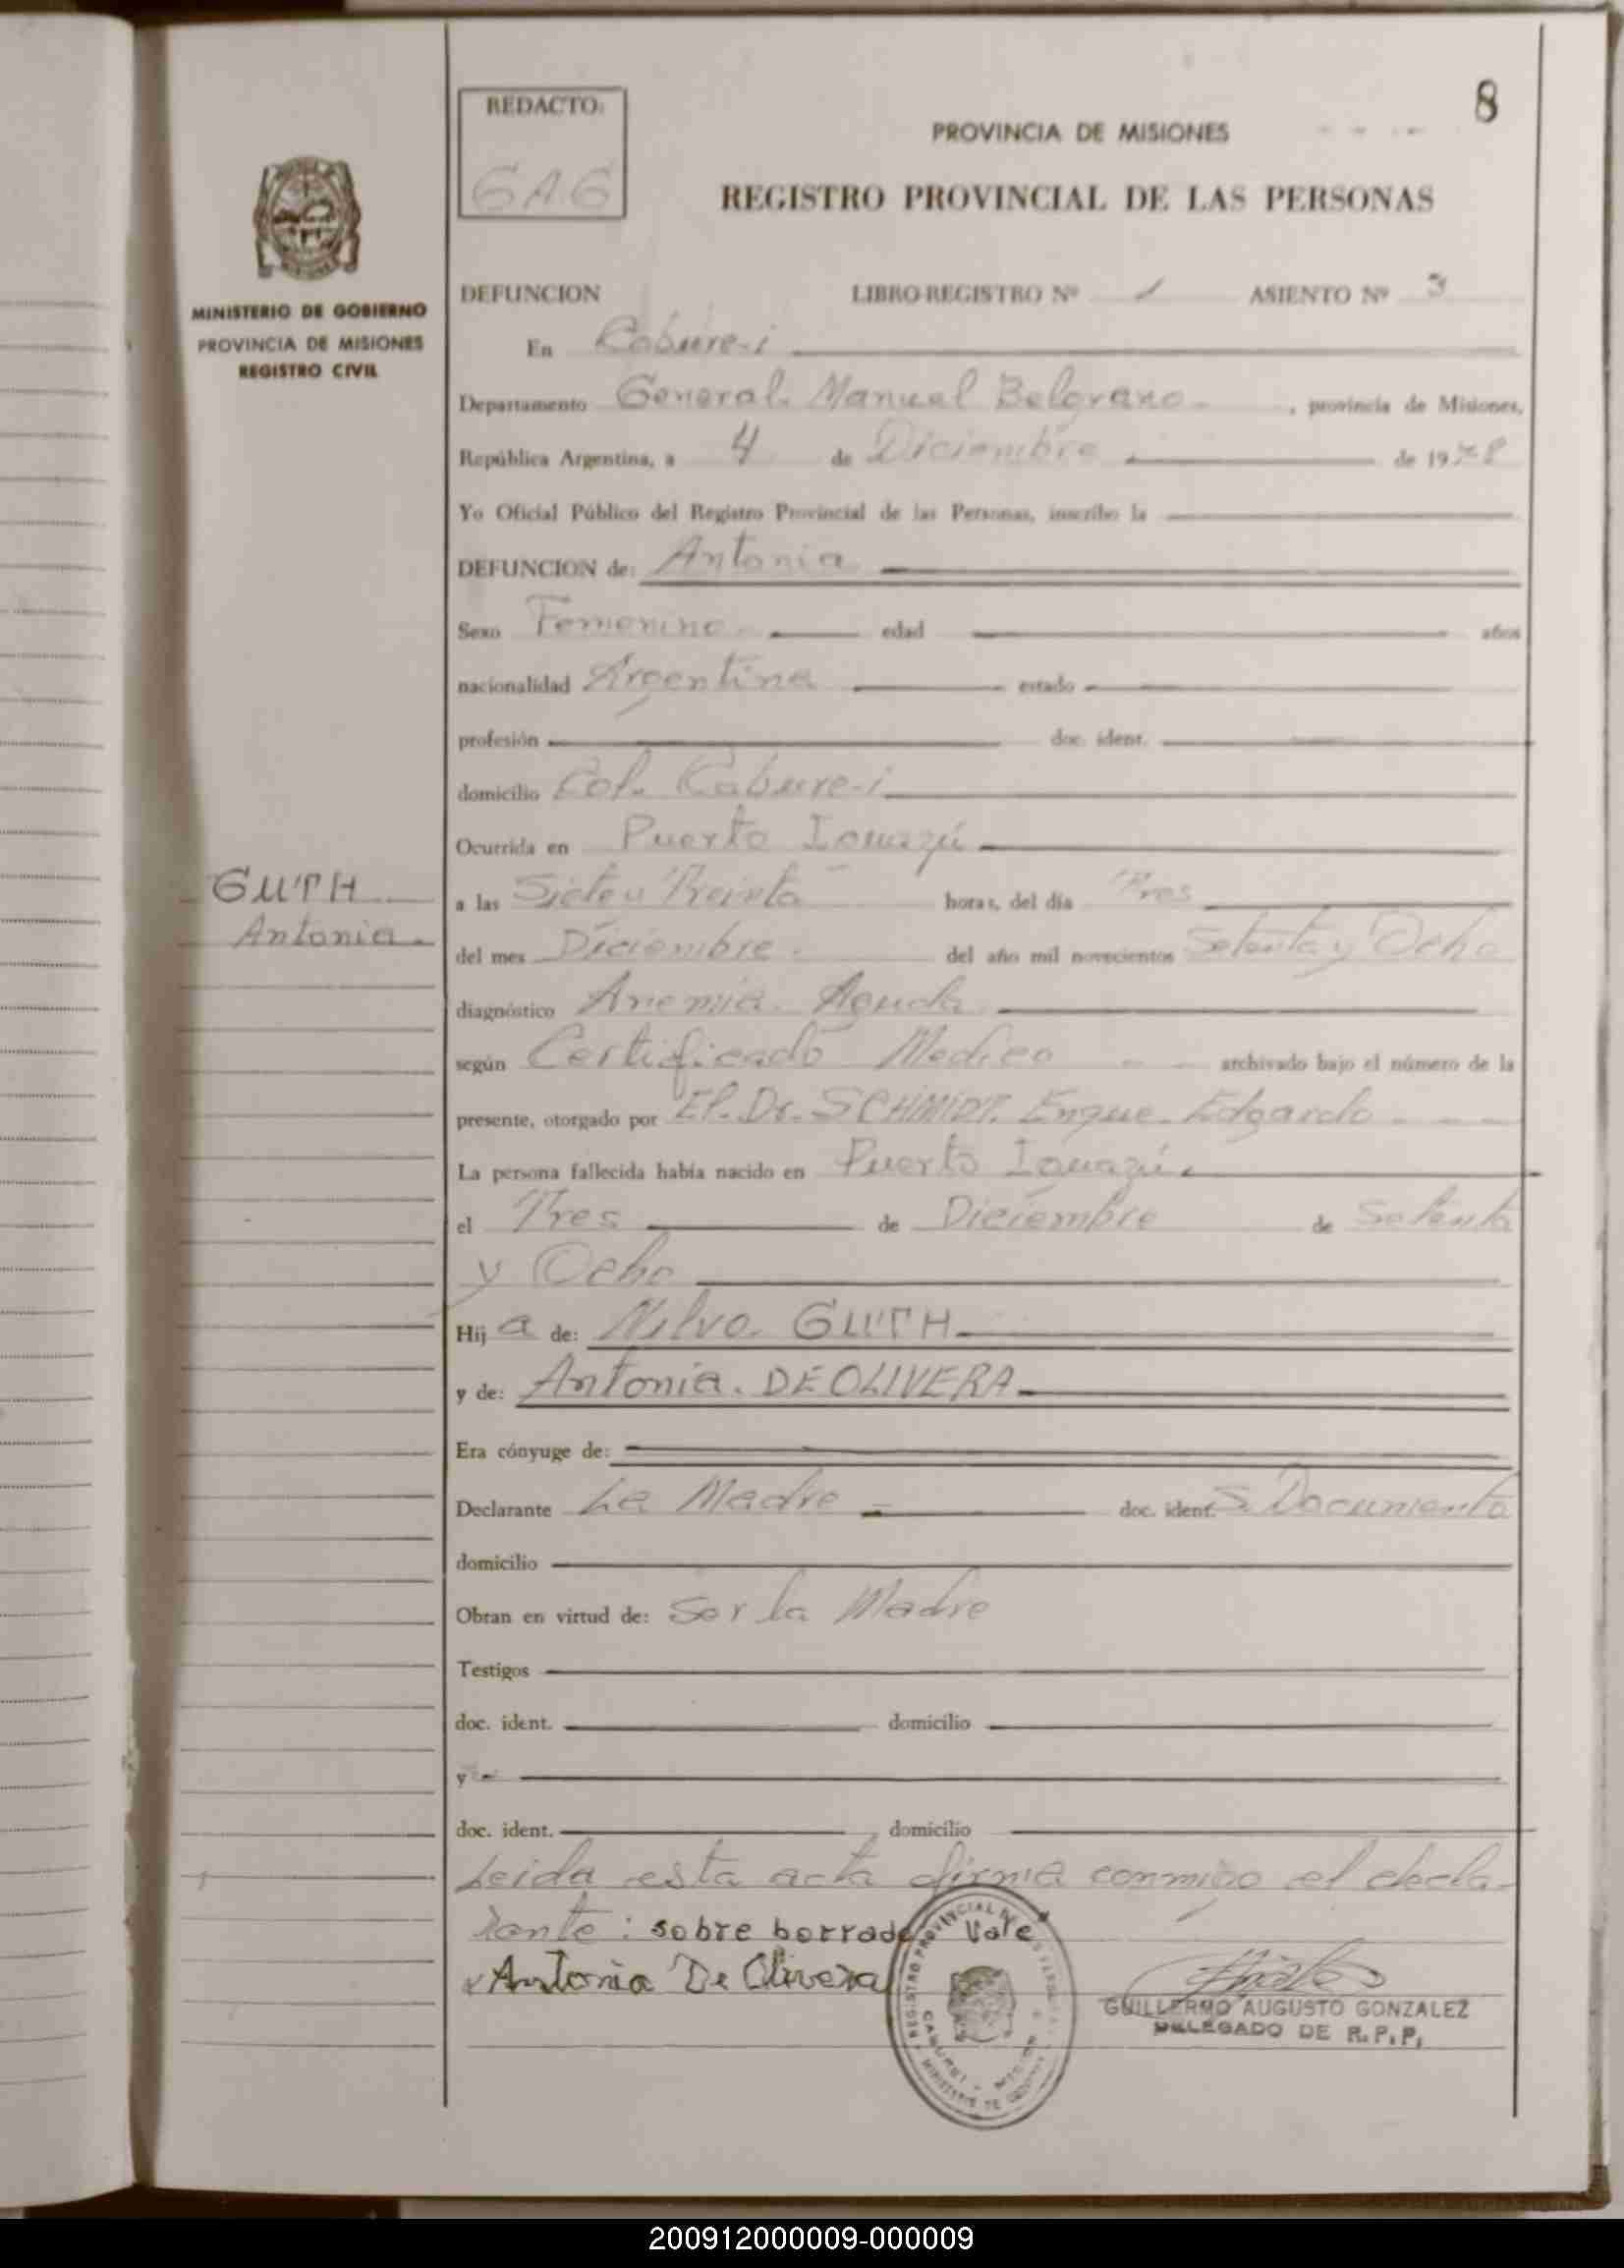 8
REDACTO:
GAG
PROVINCIA DE MISIONES
REGISTRO PROVINCIAL DE LAS PERSONAS
MINISTERIO DE GOBIERNO
PROVINCIA DE MISIONES
REGISTRO CIVIL
DEFUNCION LIBRO-REGISTRO Nº 1 ASIENTO Nº 3
En Cabure-i
Departamento General. Manuel Belgrano- , provincia de Misiones,
República Argentina, a 4 de Diciembre de 1978
Yo Oficial Público del Registro Provincial de las Personas, inscribo la
DEFUNCION de: Antonia
Sexo Femenino- edad años
nacionalidad Argentina estado
profesión doc. ident.
domicilio Col. Cabure-i
Ocurrida en Puerto Iguazú
GUTH
Antonia.
a las Siete y Treinta horas, del día Tres
del mes Diciembre. del año mil novecientos Setenta y Ocho
diagnóstico Anemia. Aguda
según Certificado Medico archivado bajo el número de la
presente, otorgado por El. Dr. SCHMIDT. Enque. Edgardo
La persona fallecida había nacido en Puerto Iguazú.
el Tres de Diciembre de Setenta
y Ocho
Hij a de: Nilvo. GUTH.
y de: Antonia. DE OLIVERA
Era cónyuge de:
Declarante La Madre doc. ident. S. Documento
domicilio
Obran en virtud de: Ser la Madre
Testigos
doc. ident. domicilio
y
doc. ident. domicilio
Leida esta acta firma conmigo el decla-
rante: sobre borrado Vale
x Antonia De Olivera
GUILLERMO AUGUSTO GONZALEZ
DELEGADO DE R.P.P.
REGISTRO PROVINCIAL DE LAS PERSONAS
CABUREI - MISIONES
MINISTERIO DE GOBIERNO
200912000009-000009